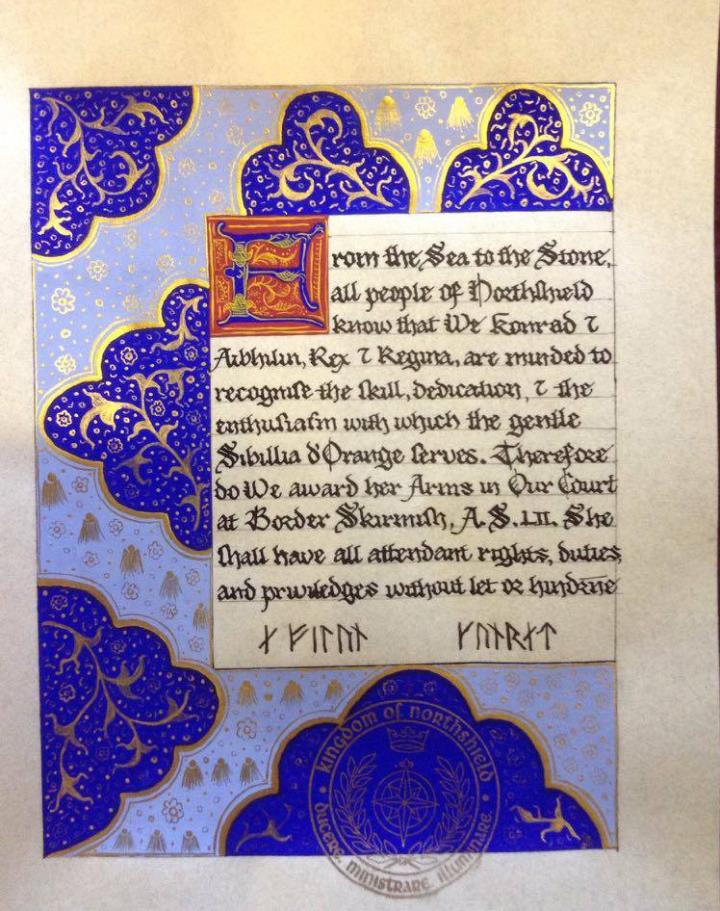 From the Sea to the Stone,
all people of Northshield
know that We Konrad ⁊
Aibhilin, Rex ⁊ Regina, are minded to
recognise the skill, dedication, ⁊ the
enthusiasm with which the gentle
Sibillia d'Orange serves. Therefore
do We award her Arms in Our Court
at Border Skirmish, A.S.LII. She
shall have all attendant rights, duties,
and priviledges without let or
ᚴᚢᚾᚱᛅᛏ
kingdom of northshield
ducere, ministrare, illuminare